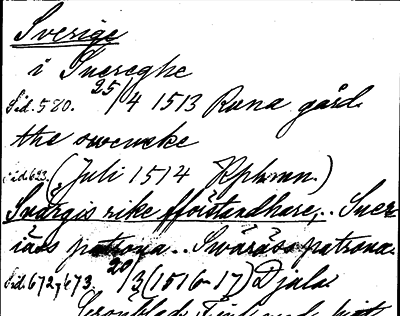 Sverige
i Suereghe
Sid. 580. 25/4 1513 Runa gård.
the swenske
Sid. 623. (Juli 1514 Kphmn.)
Suärgis rike fförstandhare,.. Suer-
iäss patrona.. Swäriäss patrona.
Sid. 672, 673. 20/3 (1516-17) Djula